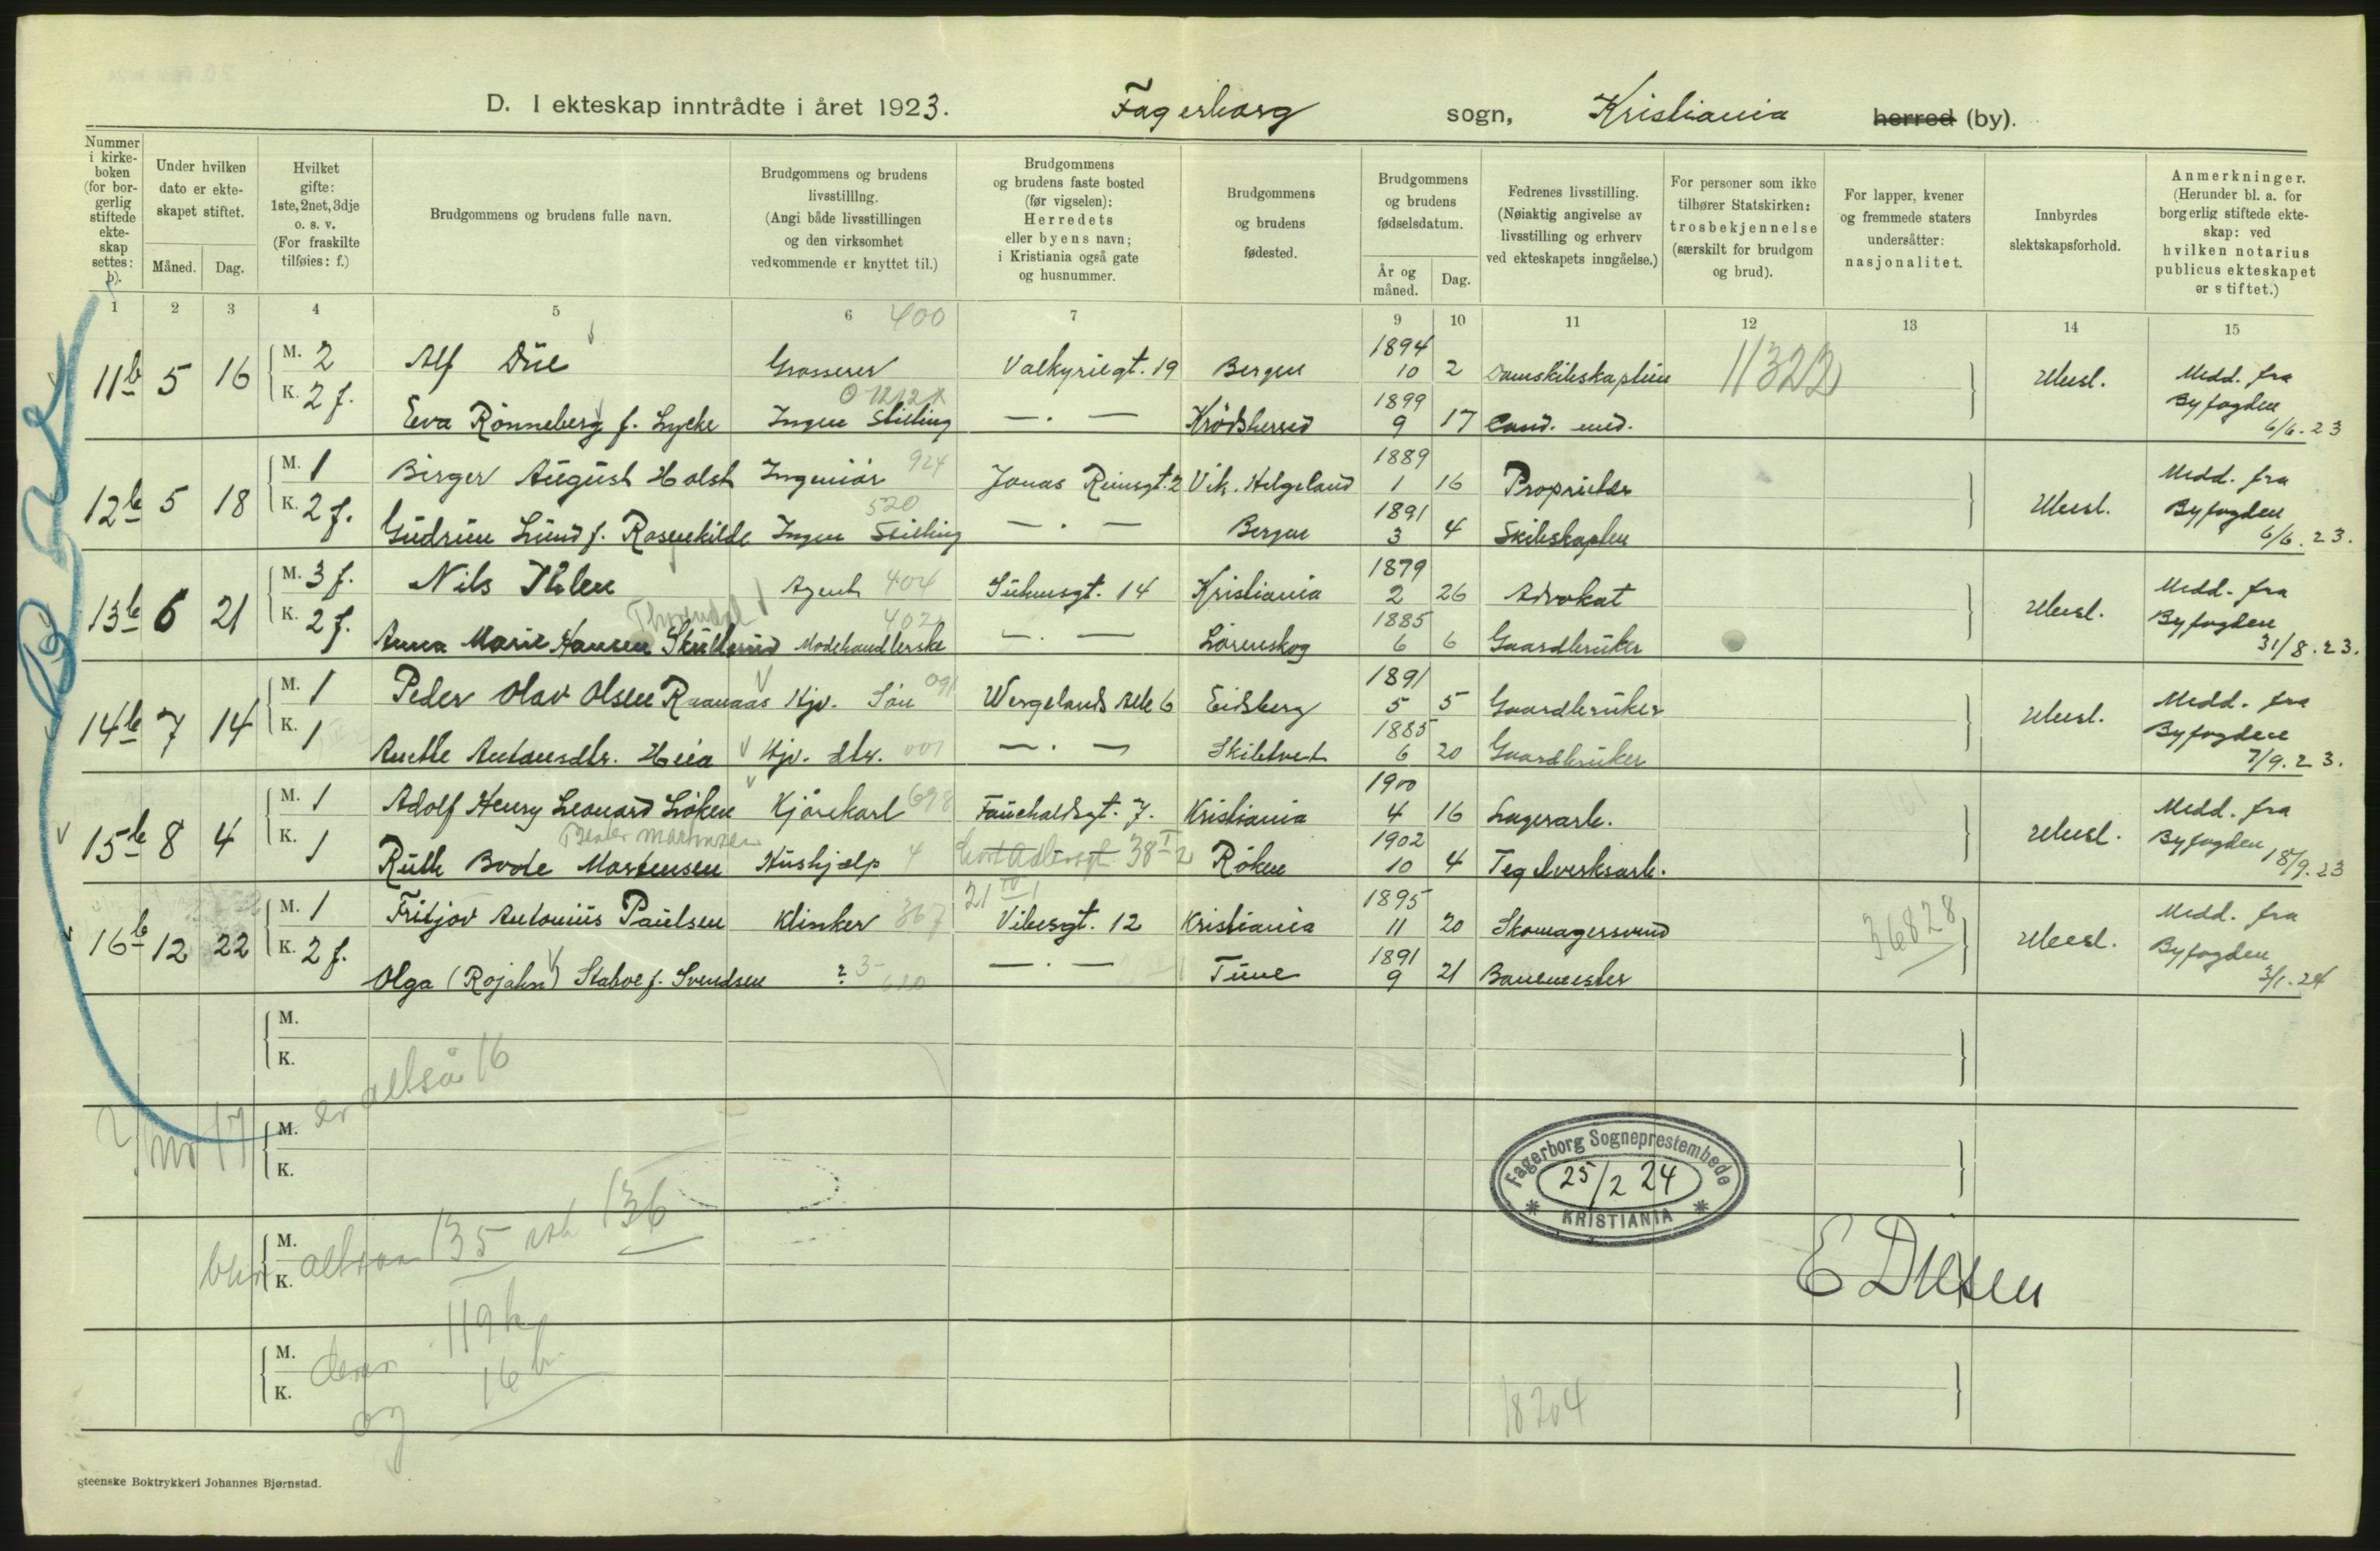 D. I ekteskap inntrådte i året 1923. Fagerborg sogn, Kristiania herred (by).
Nummer i kirke-boken (for bor-gerlig stiftede ekte-skap settes: b).
Under hvilken dato er ekte-skapet stiftet.
Måned. Dag.
Hvilket gifte: 1ste, 2net, 3dje o. s. v. (For fraskilte tilføies: f.)
Brudgommens og brudens fulle navn.
Brudgommens og brudens livsstilllng. (Angi både livsstillingen og den virksomhet vedkommende er knyttet til.)
Brudgommens og brudens faste bosted (før vigselen): Herredets eller byens navn; i Kristiania også gate og husnummer.
Brudgommens og brudens fødested.
Brudgommens og brudens fødselsdatum.
År og måned. Dag.
Fedrenes livsstilling. (Nøiaktig angivelse av livsstilling og erhverv ved ekteskapets inngåelse.)
For personer som ikke tilhører Statskirken: trosbekjennelse (særskilt for brudgom og brud).
For lapper, kvener og fremmede staters undersåtter: nasjonalitet.
Innbyrdes slektskapsforhold.
Anmerkninger. (Herunder bl. a. for borgerlig stiftede ekte-skap: ved hvilken notarius publicus ekteskapet er stiftet.)
1 2 3 4 5 6 7 9 10 11 12 13 14 15
400
11b 5 16 M. 2 Alf Due Grosserer Valkyriegt. 19 Bergen 1894 10 2 Damskibskaptein 11322 Ubesl. Medd. fra Byfogden 6/6. 23
K. 2 f. Eva Rønneberg f. Lycke Ingen Stilling — . — Krødsherred 1899 9 17 Cand. med.
12b 5 18 M. 1 Birger August Holst Ingeniør 924 Jonas Reinsgt. 2 Vik. Helgeland 1889 1 16 Proprietær Ubesl. Medd. fra Byfogden 6/6. 23.
K. 2 f. Gudrun Lund f. Rosenkilde Ingen Stilling 520 — . — Bergen 1891 3 4 Skibskaptein
13b 6 21 M. 3 f. Nils Ihlen Agent 404 Suhmsgt. 14 Kristiania 1879 2 26 Advokat Ubesl. Medd. fra Byfogden 31/8. 23.
K. 2 f. Anna Marie Hansen Skullerud Modehandlerske 402 — . — Lørenskog 1885 6 6 Gaardbruker
14b 7 14 M. 1 Peder Olav Olsen Raanaas Hjv. Søn 091 Wergelands Alle 6 Eidsberg 1891 5 5 Gaardbruker Ubesl. Medd. fra Byfogden 7/9. 23.
K. 1 Anette Antonsdtr. Heia Hjv. dtr. 001 — . — Skibtvet 1885 6 20 Gaardbruker
15b 8 4 M. 1 Adolf Henry Leonard Løken Kjørekarl 698 Fauchaldsgt. 7. Kristiania 1900 4 16 Lagerarb. Ubesl. Medd. fra Byfogden 18/9. 23
K. 1 Ruth Bodte Martensen Hushjælp 4 Cort Adlersgt 38 Røken 1902 10 4 Teglverksarb.
16b 12 22 M. 1 Fritjov Antonius Paulsen Klinker 367 Vibesgt. 12 Kristiania 1895 11 20 Skomagersvend 36828 Ubesl. Medd. fra Byfogden 3/1. 24
K. 2 f. Olga (Rojahn) Staboe f. Svendsen ? — . — Tune 1891 9 21 Banemester
M.
K.
er altså 16
nr 17 M.
K.
Fagerborg Sogneprestembede
25/2 24
KRISTIANIA
M.
K. altsaa 135 136
E Diesen
119 k
M.
K. 16 b
og
18204
steenske Boktrykkeri Johannes Bjørnstad.